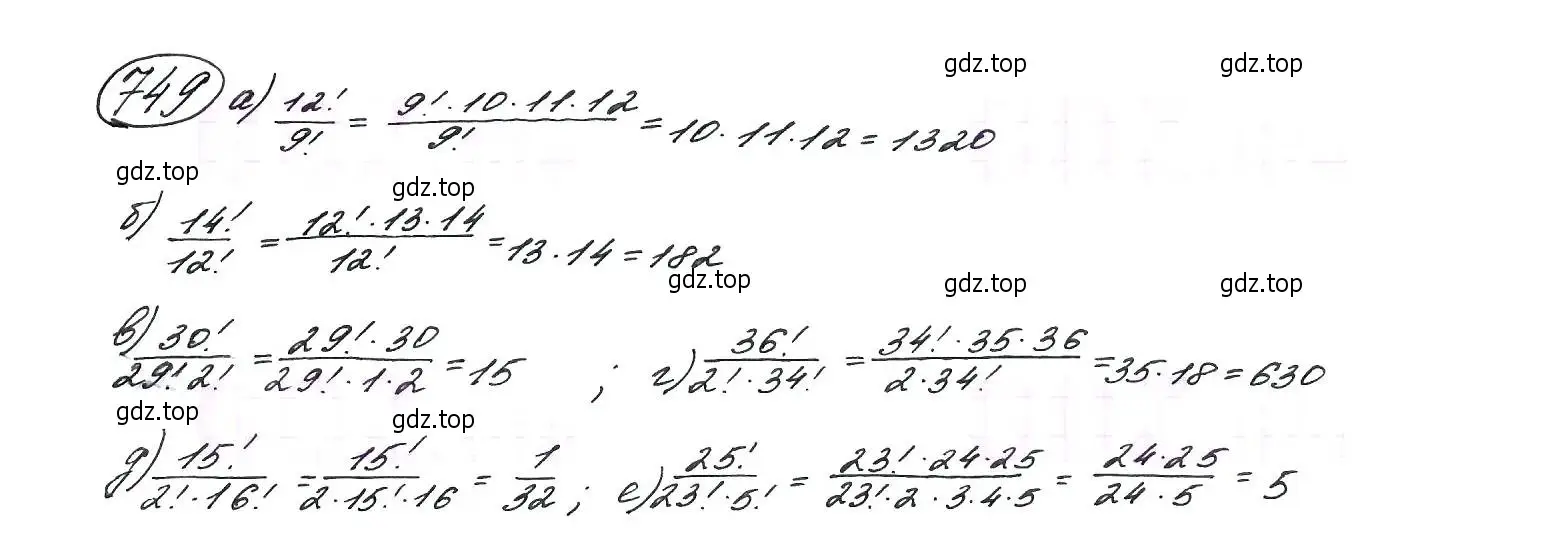 gdz.top gdz.top
749 а) 12!/9! = 9!·10·11·12/9! = 10·11·12 = 1320
gdz.top gdz.top
б) 14!/12! = 12!·13·14/12! = 13·14 = 182
gdz.top gdz.top gdz.top
в) 30!/29!2! = 29!·30/29!·1·2 = 15 ; г) 36!/2!·34! = 34!·35·36/2·34! = 35·18 = 630
gdz.top gdz.top
д) 15!/2!·16! = 15!/2·15!·16 = 1/32 ; е) 25!/23!·5! = 23!·24·25/23!·2·3·4·5 = 24·25/24·5 = 5